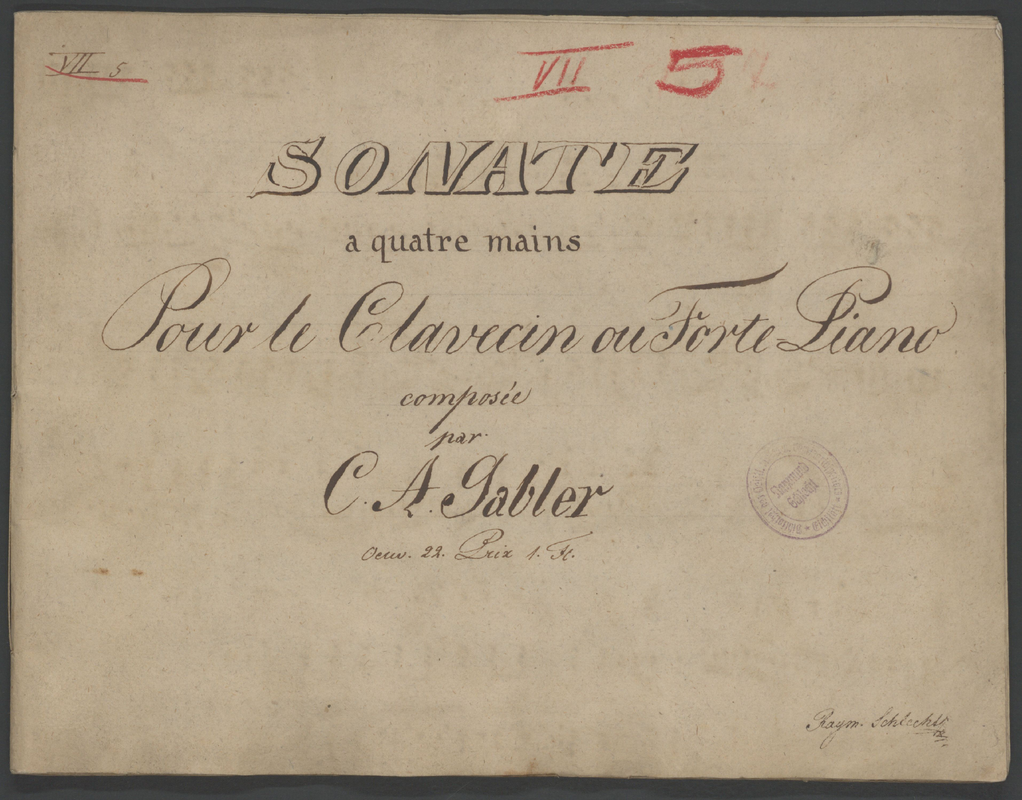 VII 5
VII 5
SONATE
a quatre mains
Pour le Clavecin ou Forte-Piano
composée
par
C. A. Gabler
Oeuv. 22. Prix 1. Fl.
Sammlung
Schlecht
Raym. Schlecht